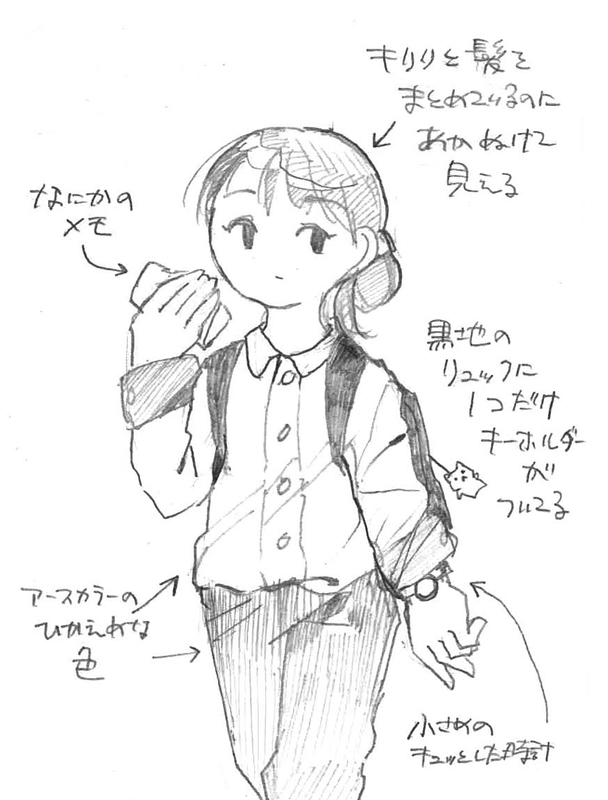 キリリと髪を
まとめているのに
あかぬけて
見える
なにかの
メモ
黒地の
リュックに
1コだけ
キーホルダー
が
ついてる
アースカラーの
ひかえめな
色
小さめの
キュッとした時計